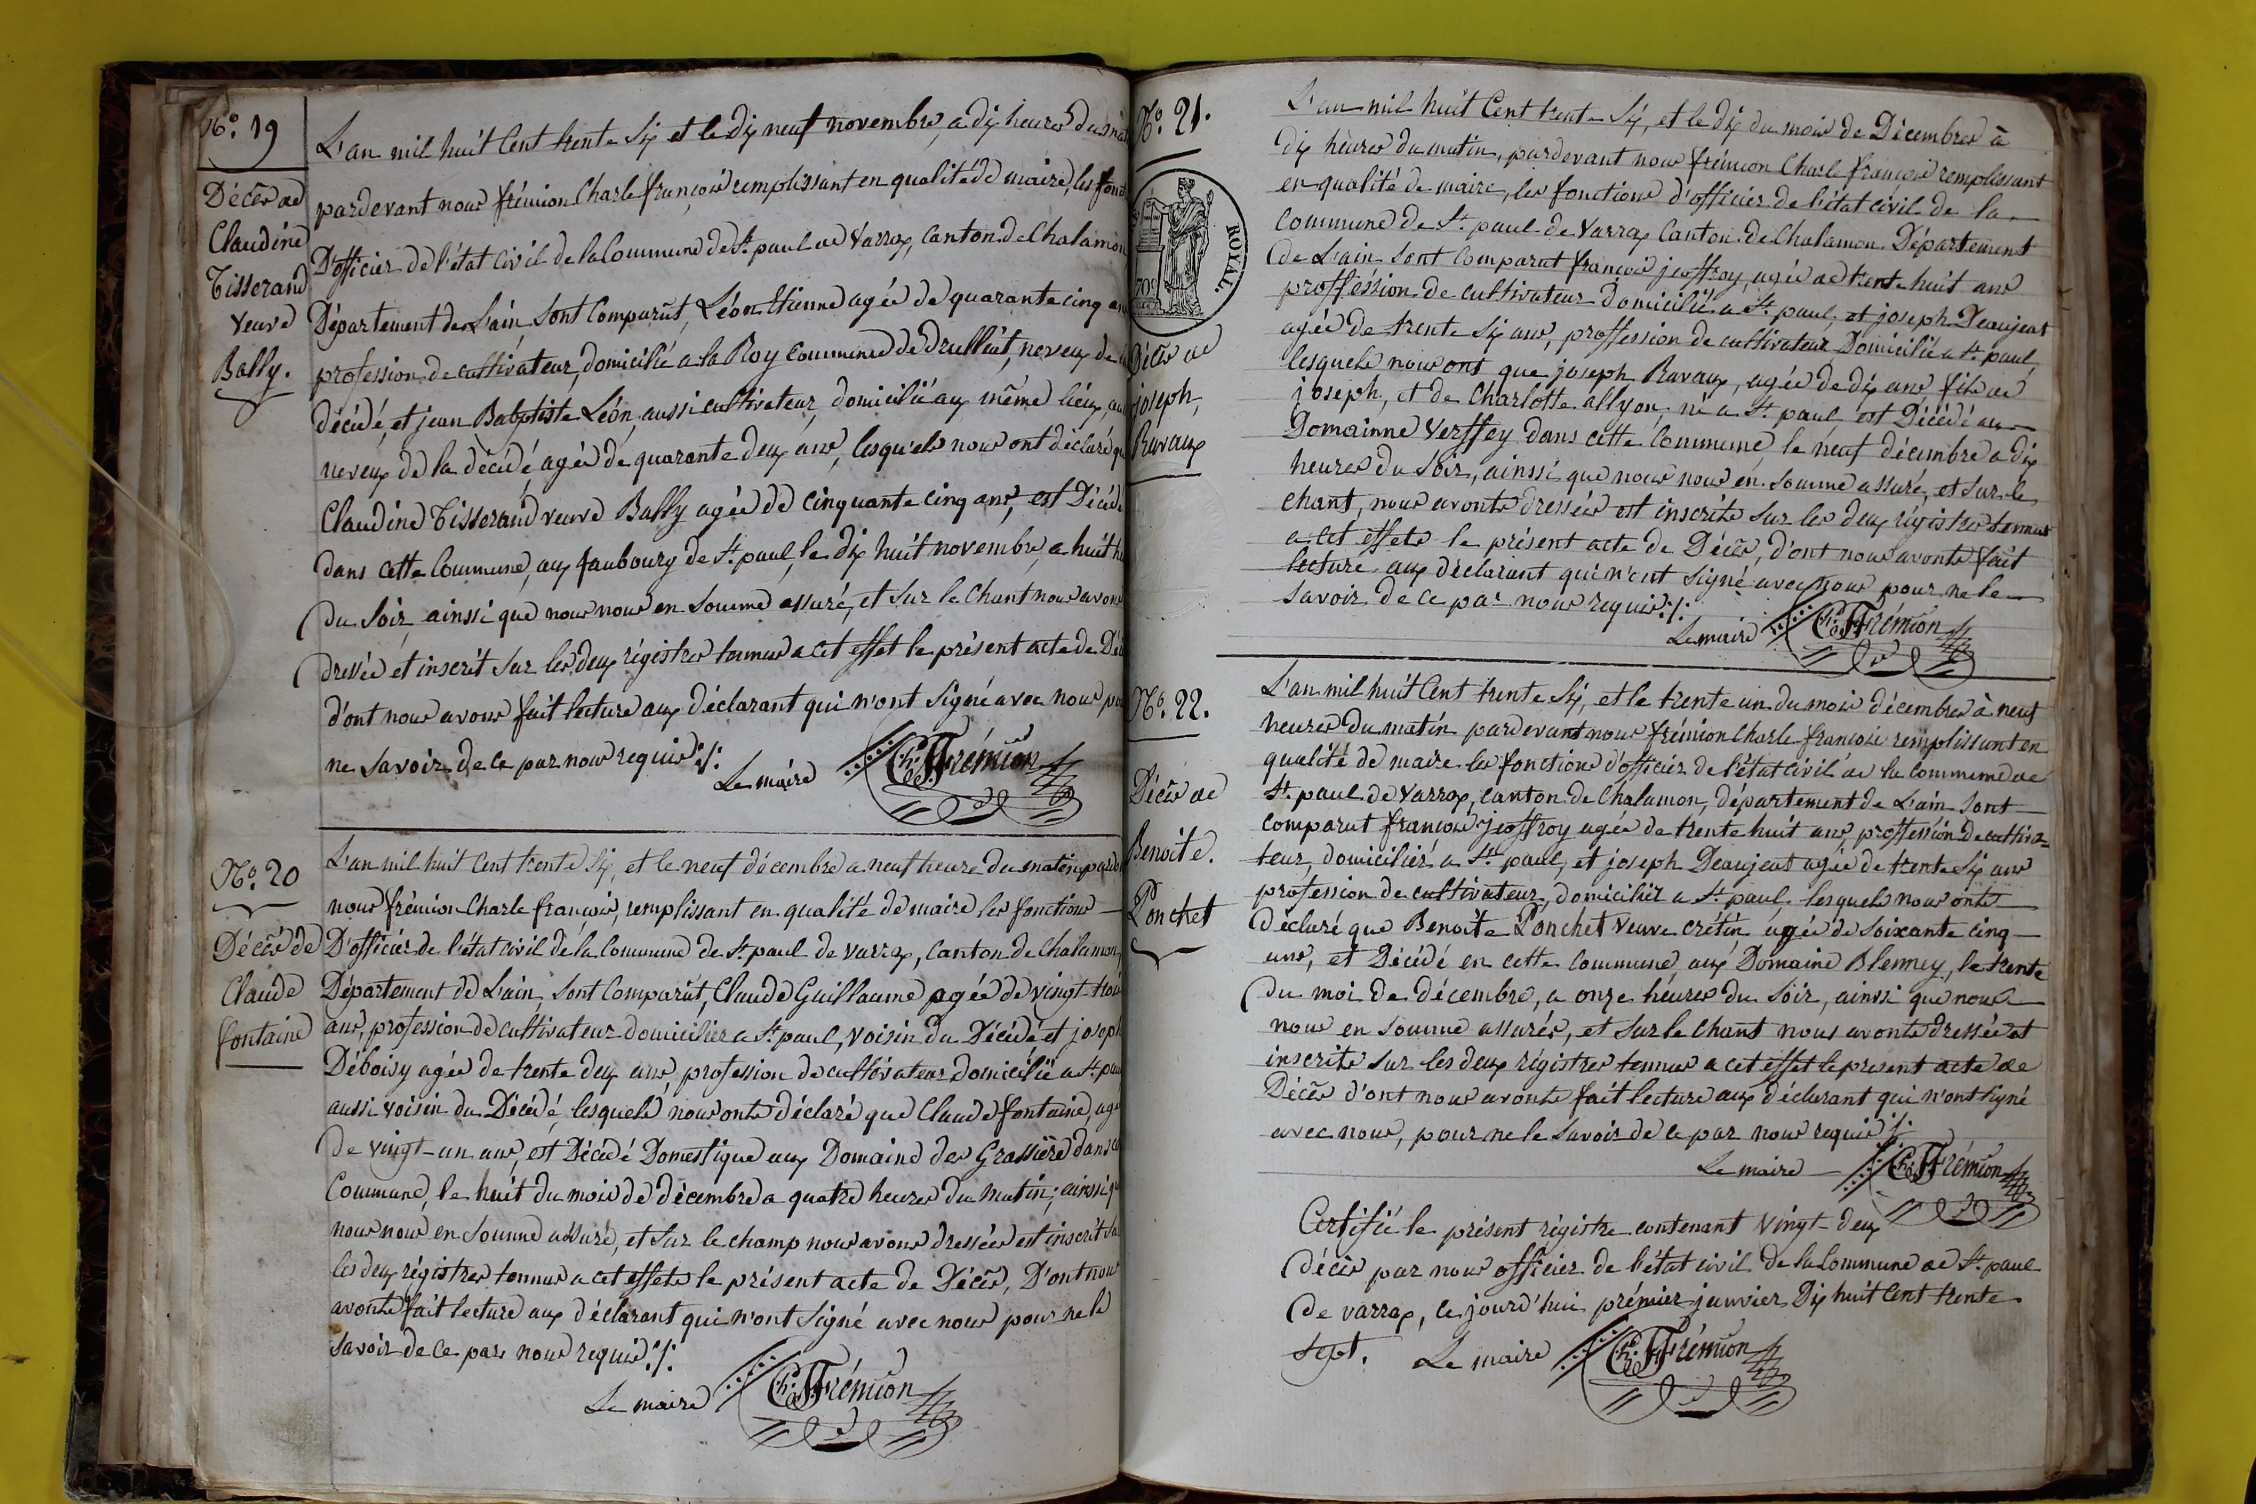 N.º 19
Décès de
Claudine
Tisserand
veuve
Bally.
L'an mil huit Cent trente Six et le dix neuf novembre, a dix heures du
pardevant nous frémion Charle françois remplissant en qualité de maire, les
D'officier de l'état Civil de la Commune de St. paul de Varrax, Canton de Chalamon
Département de L'ain Sont Comparut, Léon Etienne agée de quarante cinq
profession de cultivateur, domicilié a la Roy Commune de Druillat, neveux de
décédé, et jean Babptiste Léon, aussi cultivateur, domicilié aux même lieux,
neveux de la décédé, agée de quarante deux ans, lesquels nous ont déclaré
Claudine Tisserand veuve Bally agée de Cinquante Cinq ans, est Décédé
dans cette Commune, aux faubourg de St. paul, le dix huit novembre, a huit
du Soir, ainssi que nous nous en Somme assuré, et Sur le Chant nous avons
dressée et inscrit Sur les deux régistres tennus a cet effet le présent acte de
d'ont nous avons fait lecture aux déclarant qui n'ont Signé avec nous
ne Savoir de ce par nous requis ./.
Le maire Ch. F. Frémion
N.º 20
Décès de
Claude
fontaine
L'an mil huit Cent trente Six, et le neuf décembre a neuf heure du matin
nous frémion Charle françois, remplissant en qualité de maire les fonctions
D'officier de l'état Civil de la Commune de St. paul de Varrax, Canton de Chalamon,
Département de L'ain, Sont Comparut, Claude Guillaume agée de vingt trois
ans, profession de cultivateur domicilier a St. paul, voisin du Décédé et joseph
Déboisy agée de trente deux ans, profession de cultivateur domicilié a St. paul
aussi voisin du Décédé, lesquels nous onts déclaré que Claude fontaine,
de vingt-un ans, est Décédé Domestique aux Domaine des Grassière dans
Commune, le huit du mois de décembre a quatre heures du Matin; ainssi que
nous nous en Somme assuré, et Sur le champ nous avons dressées est inscrit
les deux régistres tennus a cet effets le présent acte de Décès, D'ont nous
avonts fait lecture aux déclarant qui n'ont Signé avec nous pour ne le
Savoir de Ce par nous requis ./.
Le maire Ch. F. Frémion
N.º 21.
ROYAL.
Décès de
joseph,
Ravaux
L'an mil huit Cent trente Six, et le dix du mois de Décembre à
dix hèures du matin, pardevant nous frémion Charle françois remplissant
en qualité de maire, les fonctions d'officier de l'état civil de la
Commune de St. paul de Varrax Canton de Chalamon Département
de L'ain Sont Comparut françois jeoffroy, agée de trente huit ans
proffession de cultivateur Domicilié a St. paul, et joseph Deaujeat
agée de trente Six ans, proffession de cultivateur Domicilié a St. paul,
lesquels nous ont que joseph Ravaux, agée de dix ans, fils de
joseph, et de Charlotte allyon, né a St. paul, est Décédé au
Domainne Verffey dans cette Commune, le neuf décembre a dix
heures du Soir, ainssi que nous nous en Somme assuré, et Sur le
chant, nous avonts dressées est inscrits Sur les deux régistres tennus
a cet effets le présent acte de Décès, d'ont nous avonts fait
lecture aux déclarant qui n'ont Signé avec nous pour ne le
Savoir de ce par nous requis ./.
Le maire Ch. F. Frémion
N.º 22.
Décès de
Benoite.
Ponchet
L'an mil huit Cent trente Six, et le trente un du mois décembre à neuf
heures du matin pardevant nous frémion Charle françois remplissant en
qualité de maire les fonctions d'officier de l'état Civil de la Commune de
St. paul de Varrax, Canton de Chalamon, département de L'ain Sont
Comparut françois jeoffroy agée de trente huit ans, proffession de cultiva-
teur, domicilier a St. paul, et joseph Deaujeat agée de trente Six ans
profession de cultivateur, domicilier a St. paul, lesquels nous onts
déclaré que Benoite Ponchet veuve crétin agée de Soixante cinq
ans, et Décédé en cette Commune, aux Domaine Blemey, le trente
du moi de décembre, a onze heures du Soir, ainssi que nous
nous en Somme assurés, et Sur le Chant nous avonts dressée et
inscrits Sur les deux régistres tennus a cet effet le present acte de
Décès d'ont nous avonts fait lecture aux déclarant qui n'ont Signé
avec nous, pour ne le Savoir de ce par nous requis ./.
Le maire Ch. F. Frémion
Certifié le présent régistre contenant vingt-deux
décès par nous officier de l'état civil de la Commune de St. paul
de varrax, ce jourd'hui prémier janvier Dix huit Cent trente
Sept. Le maire Ch. F. Frémion